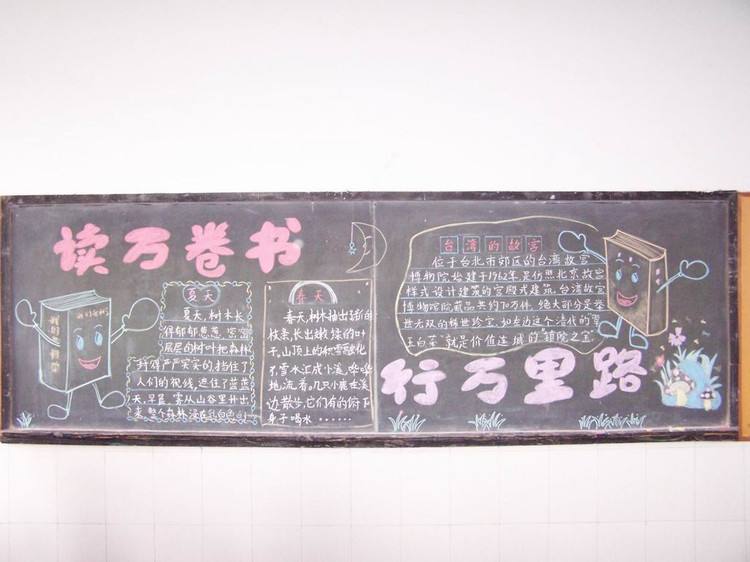 读万卷书
夏天
夏天,树木长
得郁郁葱葱,密密
层层的树叶把森林
封得严严实实的,挡住了
人们的视线,遮住了蓝蓝
天,早晨,雾从山谷里升出
来,整个森林浸在乳白色
春天
春天,树木抽出新的
枝条,长出嫩绿的叶
子,山顶上的积雪融化
了,雪水汇成小溪,哗哗
地流着。几只小鹿在溪
边散步,它们有的俯下
身子喝水……
台湾的故宫
位于台北市郊区的台湾故宫
博物院始建于1962年,是仿照北京故宫
样式设计建筑的宫殿式建筑,台湾故宫
博物院院藏品共约70万件,绝大部分是举
世无双的稀世珍宝,如左边这个清代的“翠
玉白菜”就是价值连城的“镇院之宝”
行万里路